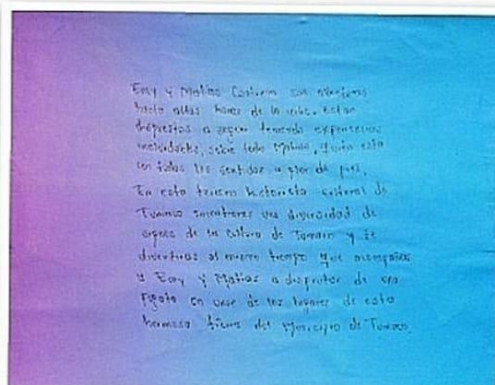 Eesy y Matias Continuan sus aventuras
hasta altas horas de la noche. Estan
dispuestos a seguir teniendo experiencias
inolvidables, sobre todo Matias, quien esta
con todos los sentidos a flor de piel.
En esta tercera historieta cultural de
Tumaco encontraras una diversidad de
de la cultura de Tumaco y te
divertiras al mismo tiempo que acompañas
a Eesy y Matias a disfrutar de una
en unos de los lugares de esta
hermosa tierra del Municipio de Tumaco.